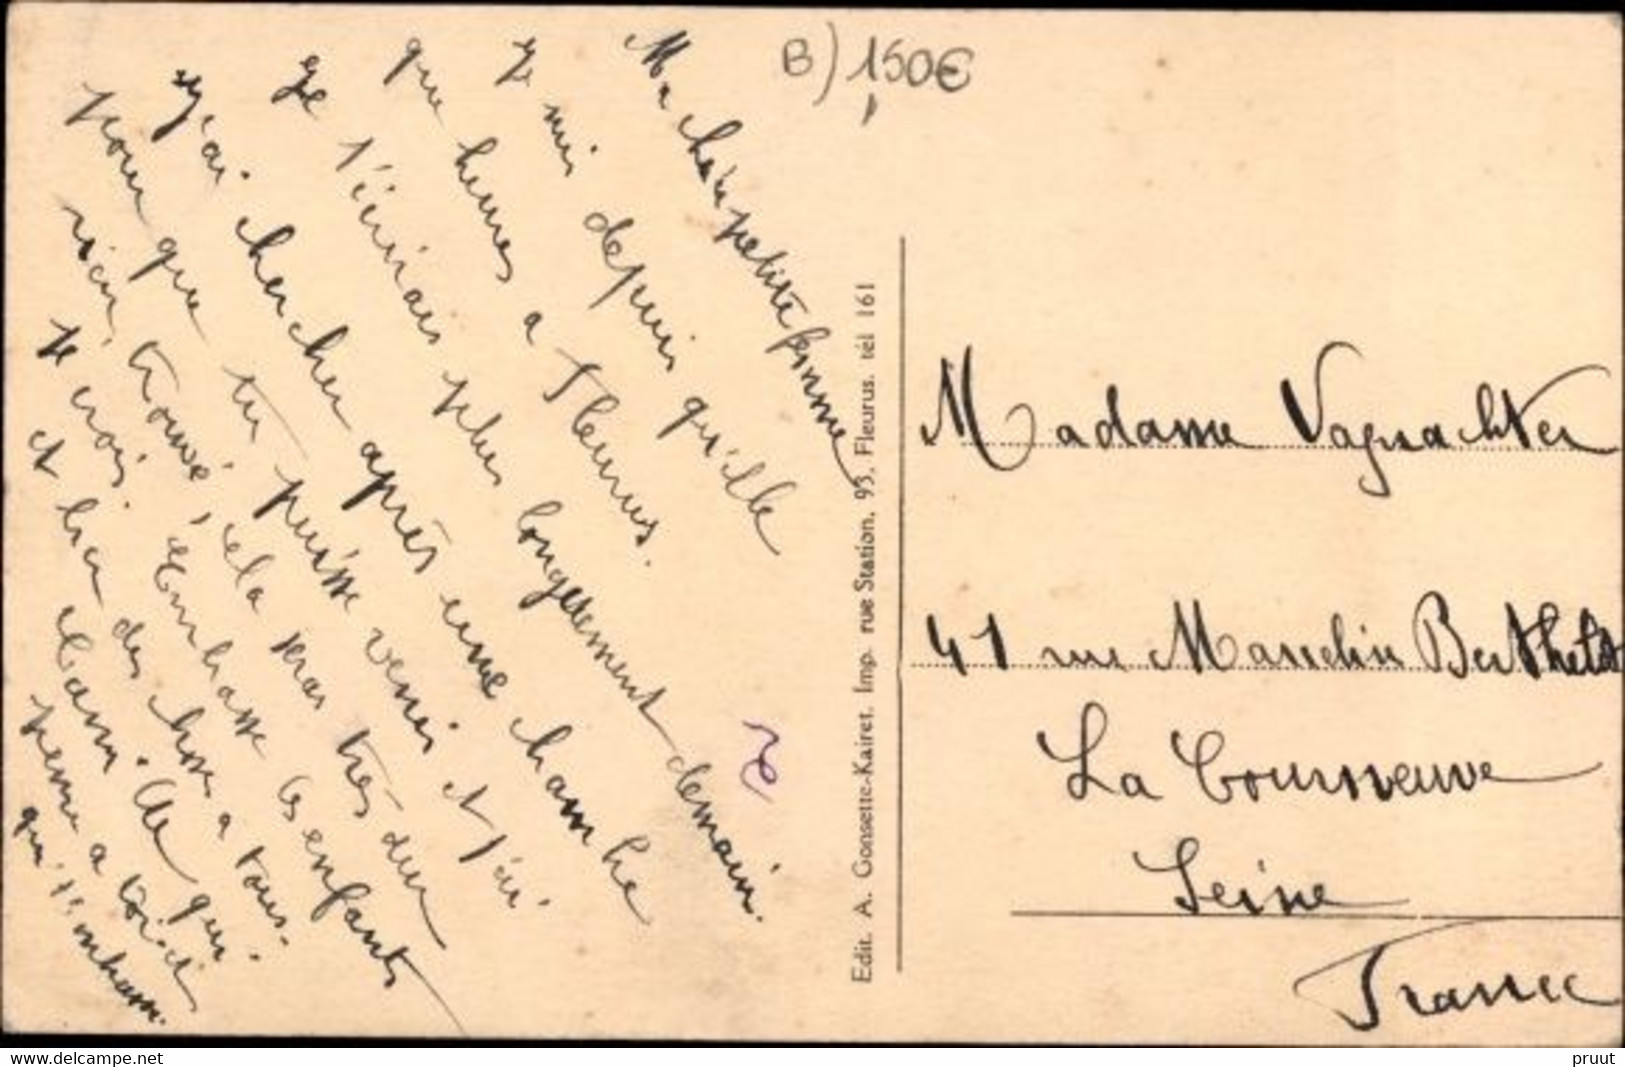 B) 1,50€
Ma chère petite femme
Je suis depuis qu'elle
que heures a Fleurus.
Je t'écirais plus longuement demain.
J'ai chercher après une chambre
pour que tu puisse venir et j'ai
rien trouvé, cela sera très dur
je crois. Embrasse les enfants
et bien des chose a tous.
Camille qui
pense a toi
qui t'embrasse.
Edit. A. Gonsette-Kairet. Imp. rue Station, 93, Fleurus. tél 161
Madame Vagnachter
41 rue Marcelin Berthelot
La Courneuve
Seine
France
www.delcampe.net
pruut